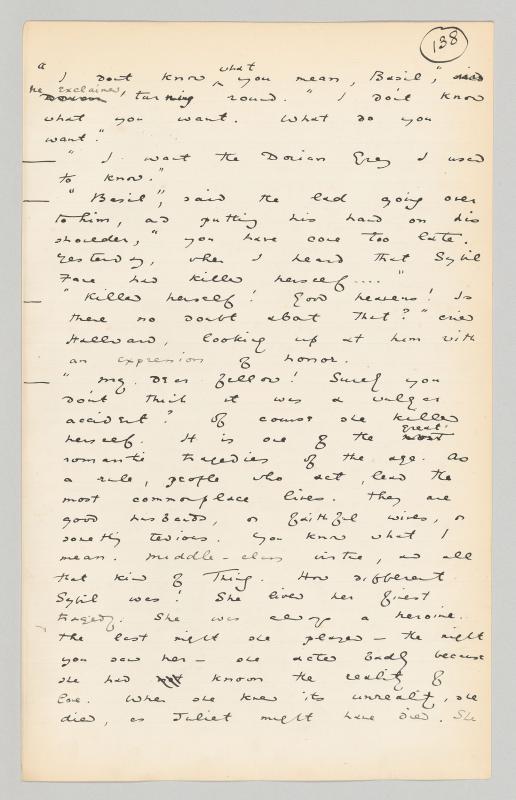 138
" I dont know what you mean, Basil," said
he exclaimed,
Dorian, turning round. " I don't know
what you want. What do you
want."
" I want the Dorian Gray I used
to know."
" Basil", said the lad going over
to him, and putting his hand on his
shoulder, " you have come too late.
Yesterday, when I heard that Sybil
Vane had killed herself.... "
" Killed herself! Good heavens! Is
there no doubt about that? " cried
Hallward, looking up at him with
an expression of horror.
" My dear fellow! Surely you
dont think it was a vulgar
accident? Of course she killed
herself. It is one of the most great
romantic tragedies of the age. As
a rule, people who act, lead the
most commonplace lives. They are
good husbands, or faithful wives, or
something tedious. You know what I
mean. Middle-class virtue, and all
that kind of Thing. How different
Sybil was! She lived her finest
tragedy. She was always a heroine.
The last night she played – the night
you saw her – she acted badly because
she had not known the reality of
love. When she knew its unreality, she
died, as Juliet might have died. She